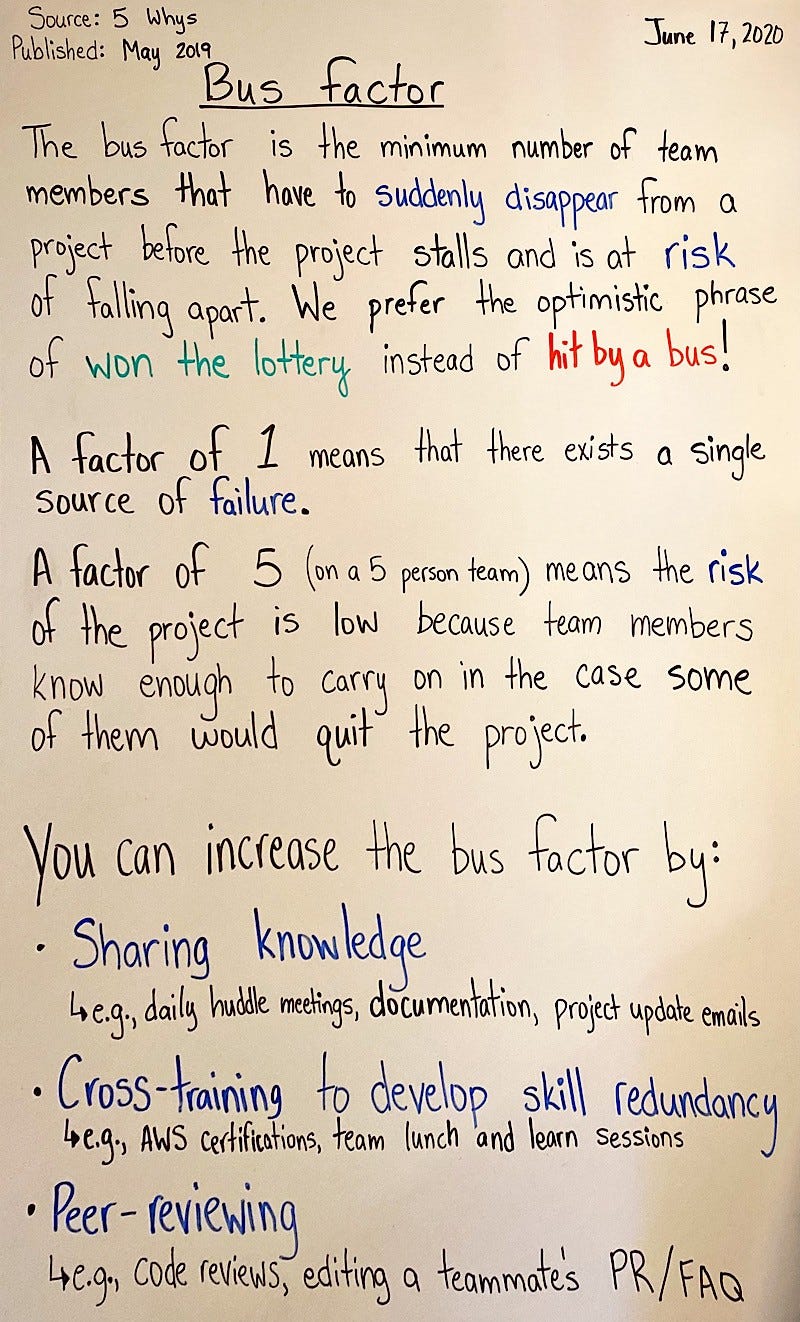 Source: 5 Whys
Published: May 2019
June 17, 2020
Bus factor
The bus factor is the minimum number of team
members that have to suddenly disappear from a
project before the project stalls and is at risk
of falling apart. We prefer the optimistic phrase
of won the lottery instead of hit by a bus!
A factor of 1 means that there exists a single
source of failure.
A factor of 5 (on a 5 person team) means the risk
of the project is low because team members
know enough to carry on in the case some
of them would quit the project.
You can increase the bus factor by:
• Sharing knowledge
↳ e.g., daily huddle meetings, documentation, project update emails
• Cross-training to develop skill redundancy
↳ e.g., AWS certifications, team lunch and learn sessions
• Peer-reviewing
↳ e.g., code reviews, editing a teammate's PR/FAQ